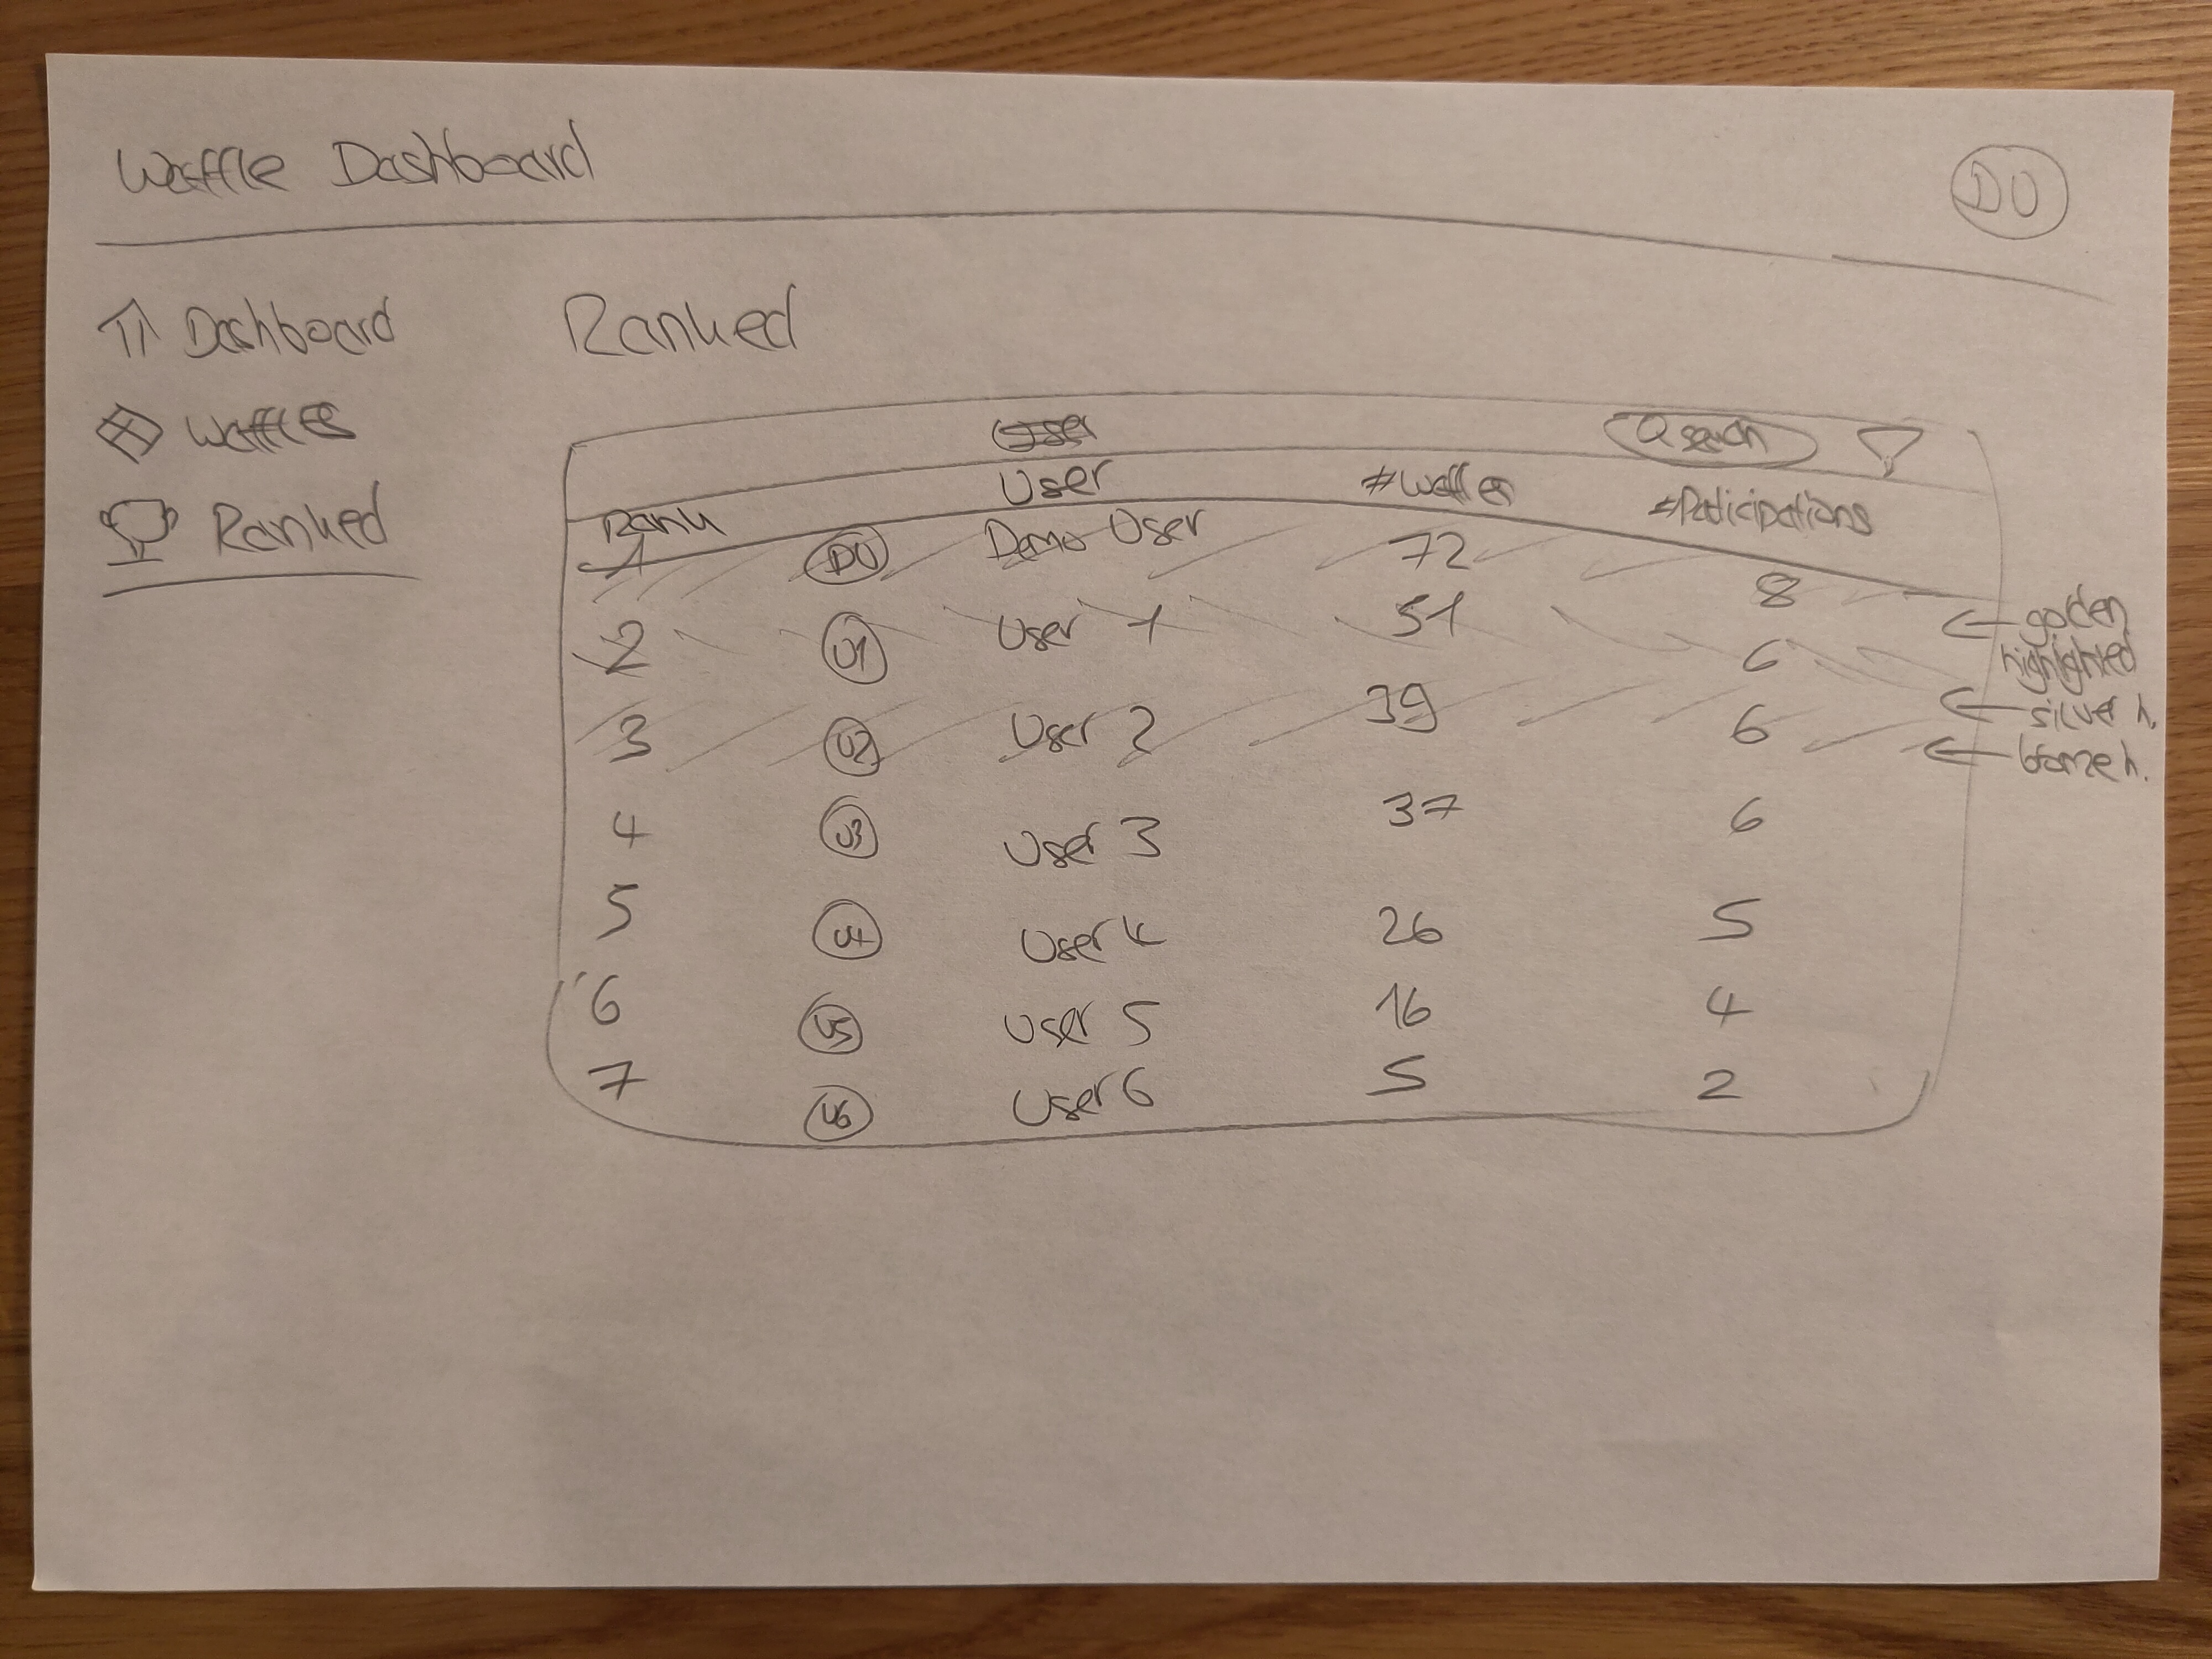 Waffle Dashboard
DU
Dashboard
Waffles
Ranked
Ranked
User
search
Rank
User
#Waffles
#Participations
1 DU Demo User 72 8
2 U1 User 1 51 6
3 U2 User 2 39 6
4 U3 User 3 37 6
5 U4 User 4 26 5
6 U5 User 5 16 4
7 U6 User 6 5 2
golden
highlighted
silver h.
bronze h.